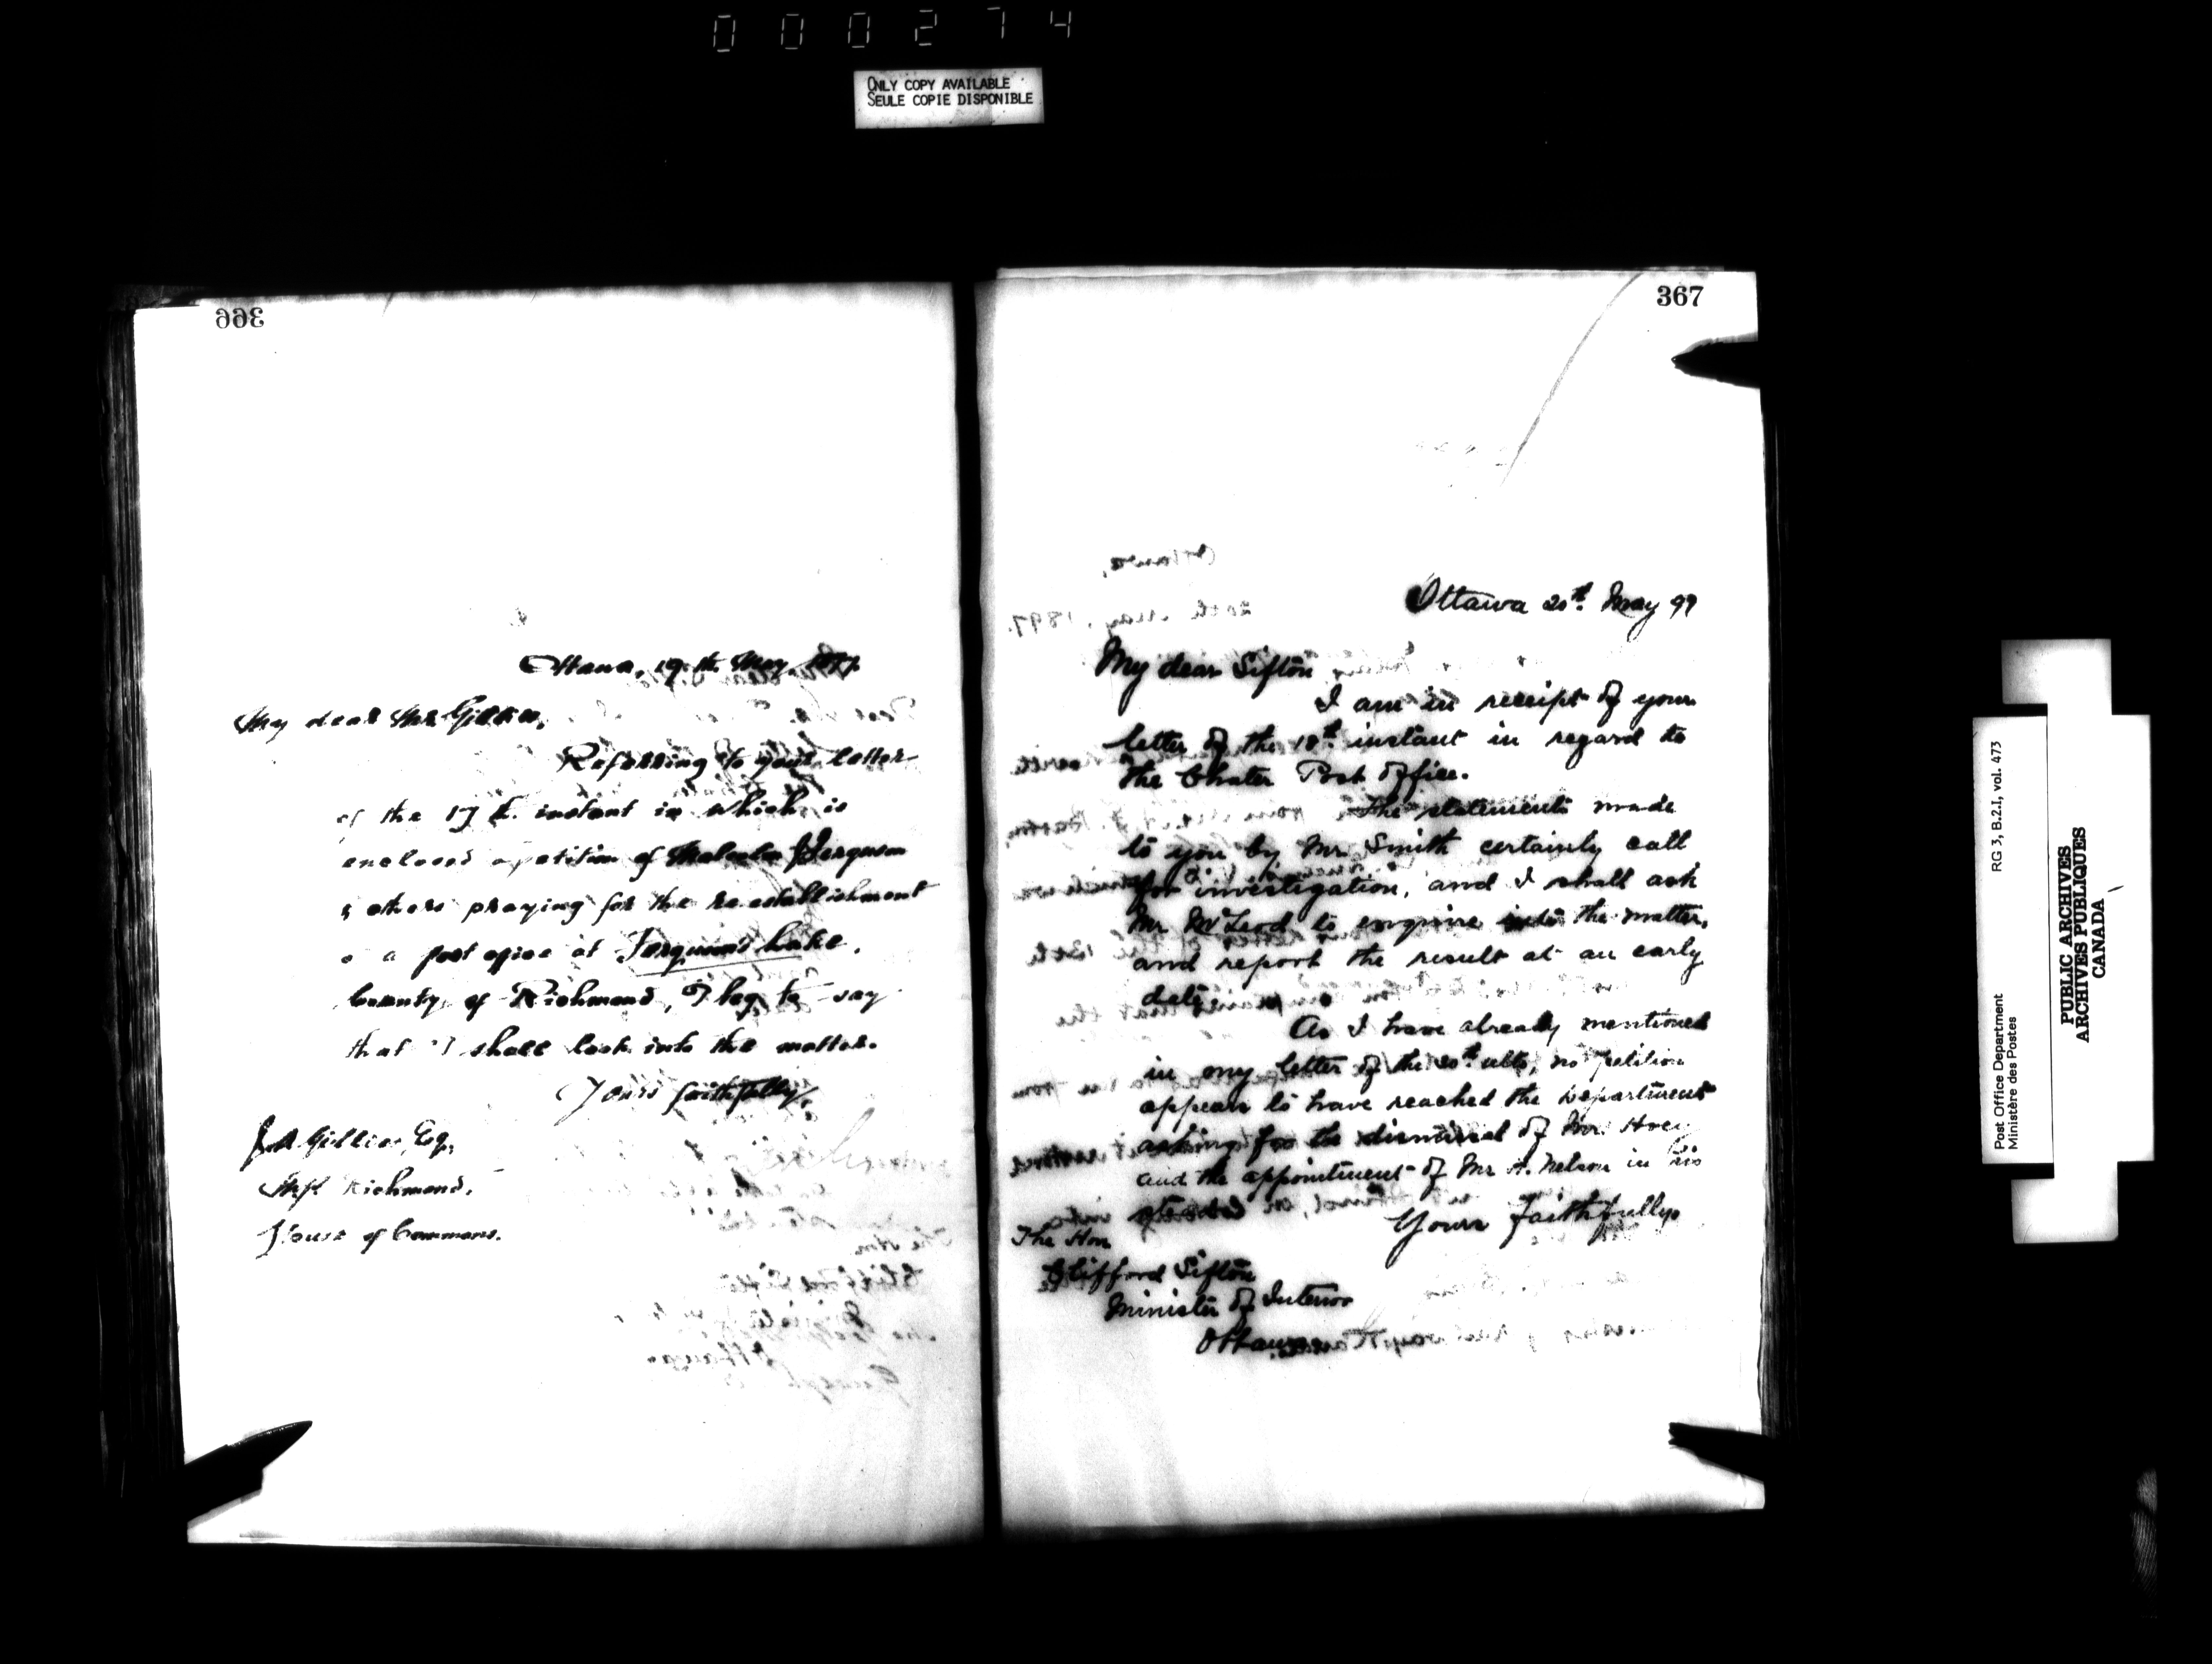 000274
ONLY COPY AVAILABLE
SEULE COPIE DISPONIBLE
366
Ottawa, 19th. May, 1897.
My dear Mr Gillies,
Referring to your letter
of the 17th. instant in which is
enclosed a petition of Malcolm Ferguson
& others praying for the re-establishment
a post office at Ferguson's Lake,
County of Richmond, I beg to say
that I shall look into the matter.
Yours faithfully,
J.A. Gillies, Esq.,
Richmond,
House of Commons.
367
Ottawa 20th. May 97
My dear Sifton
I am in receipt of your
letter of the 18th. instant in regard to
the Chater Post Office.
The statements made
to you by Mr. Smith certainly call
for investigation, and I shall ask
Mr McLeod to enquire into the matter,
and report the result at an early
date.
As I have already mentioned
in my letter of the 20th. ulto, no petition
appears to have reached the Department
asking for the dismissal of Mr.
and the appointment of Mr A. Nelson in his
stead.
Yours faithfully
The Hon
Clifford Sifton
Minister of Interior
Ottawa
Post Office Department
Ministère des Postes
RG 3, B.2.I, vol. 473
PUBLIC ARCHIVES
ARCHIVES PUBLIQUES
CANADA